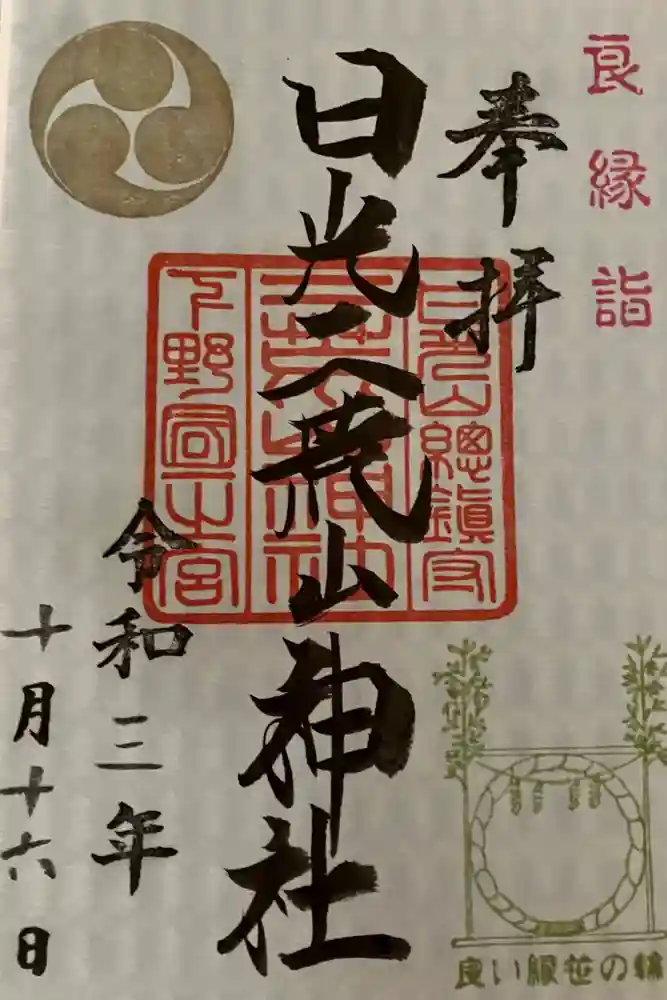 良縁詣
奉拝
日光二荒山神社
日光山總鎮守
二荒山神社
下野国一之宮
令和三年
十月十六日
良い縁笹の輪